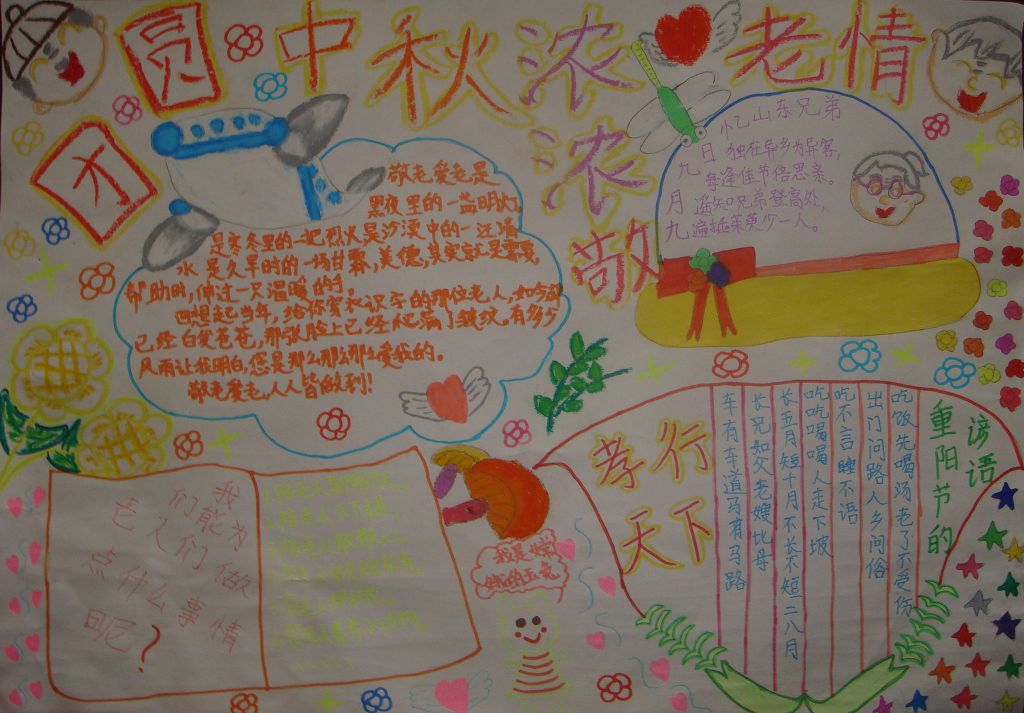 圆中秋浓老情
月浓
敬
忆山东兄弟
九月九日
独在异乡为异客，
每逢佳节倍思亲。
遥知兄弟登高处，
遍插茱萸少一人。
敬老爱老是
黑夜里的一盏明灯
是寒冬里的一把烈火是沙漠中的一汪清
水 是久旱时的一场甘霖，美德，其实就是需要
帮助时，伸过一只温暖的手。
回想起当年，给你穿衣识字的那位老人，如今
已经白发苍苍，那张脸上已经布满了皱纹，有多少
风雨让我明白，您是那么那么那么爱我的。
敬老爱老，人人皆做到！
重阳节的
谚语
吃饭先喝汤老了不受伤
出门问路入乡问俗
吃不言睡不语
吃吃喝喝人走下坡
长五月短十月不长不短二八月
长兄如父老嫂比母
车有车道马有马路
孝行
天下
我们能为
老人们做
点什么事情
呢？